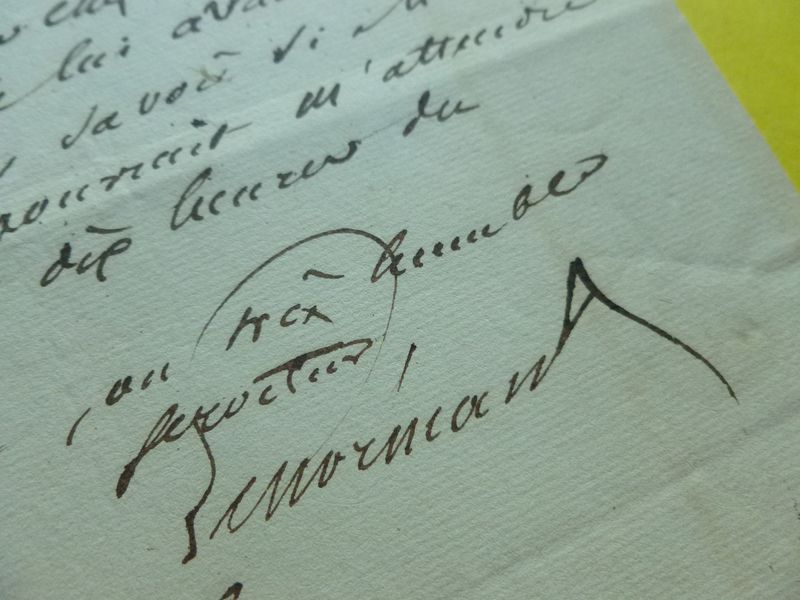 lui avai
savoir si M
pourrait m'attendre
dix heures du
son très humble
serviteur,
Lenormand